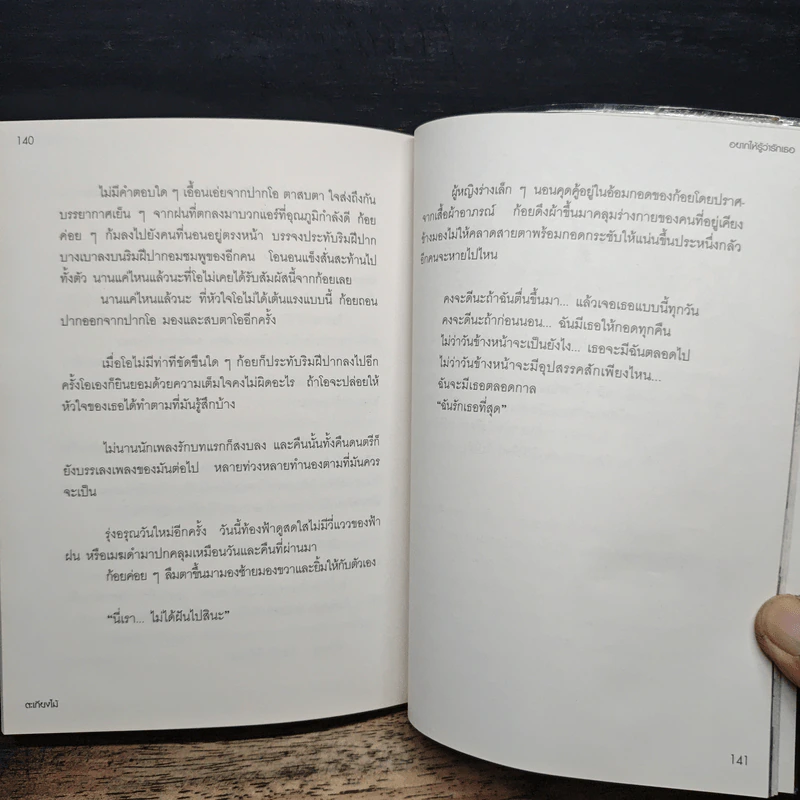 140
ไม่มีคำตอบใด ๆ เอื้อนเอ่ยจากปากโอ ตาสบตา ใจส่งถึงกัน
บรรยากาศเย็น ๆ จากฝนที่ตกลงมาบวกแอร์ที่อุณภูมิกำลังดี ก้อย
ค่อย ๆ ก้มลงไปยังคนที่นอนอยู่ตรงหน้า บรรจงประทับริมฝีปาก
บางเบาลงบนริมฝีปากอมชมพูของอีกคน โอนอนแข็งสั่นสะท้านไป
ทั้งตัว นานแค่ไหนแล้วนะที่โอไม่เคยได้รับสัมผัสนี้จากก้อยเลย
นานแค่ไหนแล้วนะ ที่หัวใจโอไม่ได้เต้นแรงแบบนี้ ก้อยถอน
ปากออกจากปากโอ มองและสบตาโออีกครั้ง
เมื่อโอไม่มีท่าทีขัดขืนใด ๆ ก้อยก็ประทับริมฝีปากลงไปอีก
ครั้งโอเองก็ยินยอมด้วยความเต็มใจคงไม่ผิดอะไร ถ้าโอจะปล่อยให้
หัวใจของเธอได้ทำตามที่มันรู้สึกบ้าง
ไม่นานนักเพลงรักบทแรกก็สงบลง และคืนนั้นทั้งคืนดนตรีก็
ยังบรรเลงเพลงของมันต่อไป หลายท่วงหลายทำนองตามที่มันควร
จะเป็น
รุ่งอรุณวันใหม่อีกครั้ง วันนี้ท้องฟ้าดูสดใสไม่มีวี่แววของฟ้า
ฝน หรือเมฆดำมาปกคลุมเหมือนวันและคืนที่ผ่านมา
ก้อยค่อย ๆ ลืมตาขึ้นมามองซ้ายมองขวาและยิ้มให้กับตัวเอง
“นี่เรา... ไม่ได้ฝันไปสินะ”
ตะเกียงไม้
อยากให้รู้ว่ารักเธอ
ผู้หญิงร่างเล็ก ๆ นอนคุดคู้อยู่ในอ้อมกอดของก้อยโดยปราศ-
จากเสื้อผ้าอาภรณ์ ก้อยดึงผ้าขึ้นมาคลุมร่างกายของคนที่อยู่เคียง
ข้างมองไม่ให้คลาดสายตาพร้อมกอดกระชับให้แน่นขึ้นประหนึ่งกลัว
อีกคนจะหายไปไหน
คงจะดีนะถ้าฉันตื่นขึ้นมา... แล้วเจอเธอแบบนี้ทุกวัน
คงจะดีนะถ้าก่อนนอน... ฉันมีเธอให้กอดทุกคืน
ไม่ว่าวันข้างหน้าจะเป็นยังไง... เธอจะมีฉันตลอดไป
ไม่ว่าวันข้างหน้าจะมีอุปสรรคสักเพียงไหน...
ฉันจะมีเธอตลอดกาล
“ฉันรักเธอที่สุด”
141